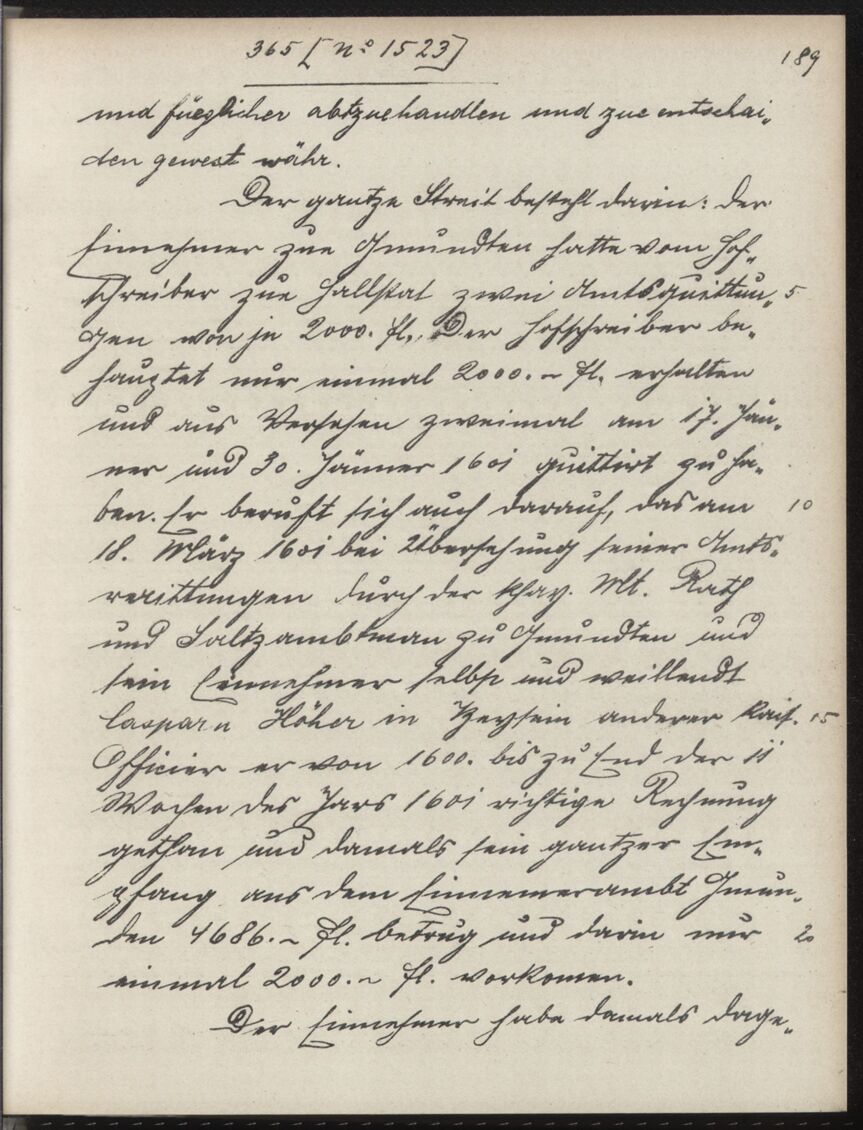 365 [Nº 1523]
189
und füeglicher abtzuehandlen und zue entschai„
den gewest währ.
Der gantze Streit besteht darin: der
Einnehmer zue Gmundten hatte vom Hof„
schreiber zue Hallstat zwei Amtsquittun„ 5
gen von je 2000. fl. Der Hofschreiber be„
hauptet nur einmal 2000.– fl. erhalten
und aus Versehen zweimal am 17. Jän„
ner und 30. Jänner 1601 quittirt zu ha„
ben. Er beruft sich auch darauf, das am 10
18. März 1601 bei Übersehung seiner Amts„
raittungen durch der khay. Mt. Rath
und Saltzambtman zu Gmundten und
sein Einnehmer selbst und weillendt
Casparn Höher in Beysein anderer kais. 15
Officier er von 1600. bis zu End der 11
Wochen des Jars 1601 richtige Rechnung
gethan und damals sein gantzer Em„
pfang aus dem Einnemerambt Gmun„
den 4686.– fl. betrug und darin nur 20
einmal 2000.– fl. vorkomen.
Der Einnehmer habe damals dage„